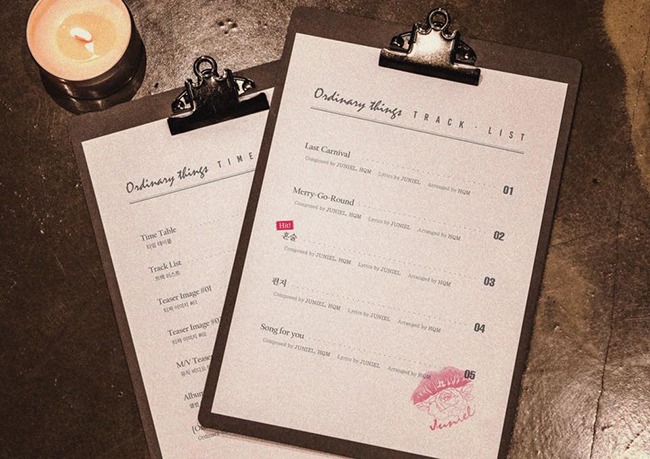 Ordinary things TRACK · LIST
Last Carnival 01
Composed by JUNIEL, HQM Lyrics by JUNIEL Arranged by HQM
Merry-Go-Round 02
Composed by JUNIEL, HQM Lyrics by JUNIEL Arranged by HQM
Hit!
혼술 03
Composed by JUNIEL, HQM Lyrics by JUNIEL Arranged by HQM
편지 04
Composed by JUNIEL, HQM Lyrics by JUNIEL Arranged by HQM
Song for you 05
Composed by JUNIEL, HQM Lyrics by JUNIEL Arranged by HQM
Juniel
Ordinary things TIME
Time Table
타임 테이블
Track List
트랙 리스트
Teaser Image #01
티저 이미지
Teaser Image
티저 이미지
M/V Teaser
뮤직 비디오
Album
앨범